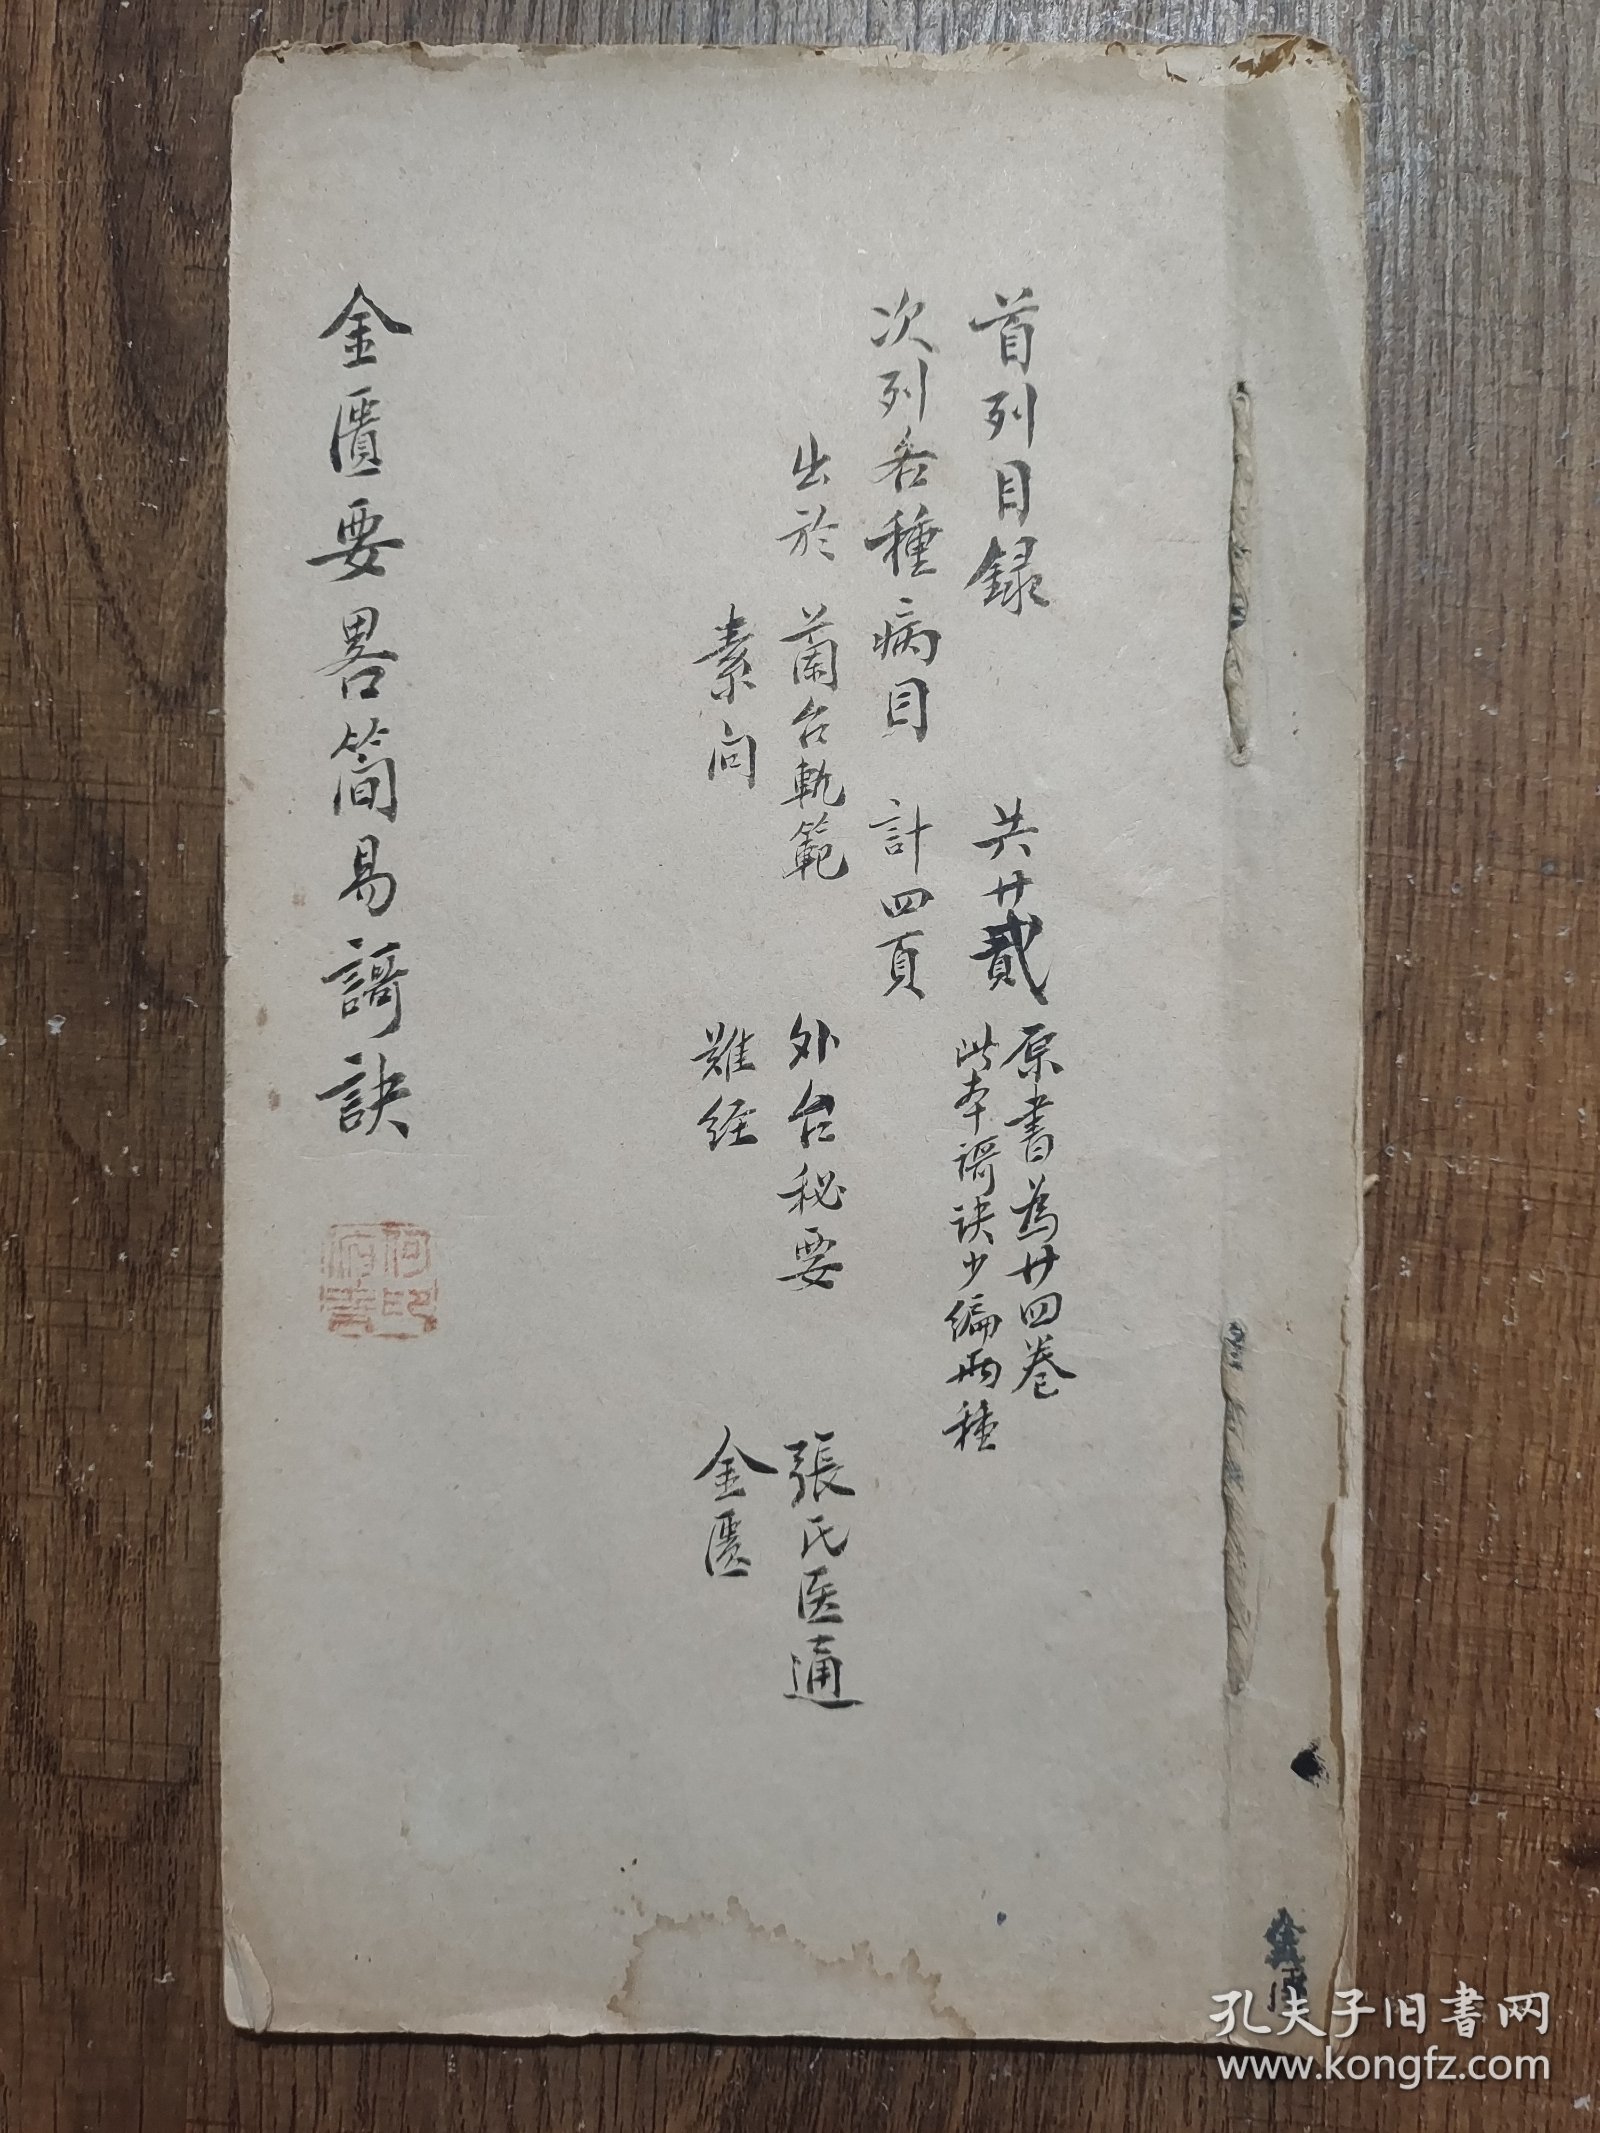 首列目録 共廿貳
原書為廿四卷
此本謌訣少編兩種
次列各種病目 計四頁
出於 蘭台軌範 外台秘要 張氏医通
素问 難经 金匱
金匱要畧簡易謌訣
孔夫子旧书网
www.kongfz.com